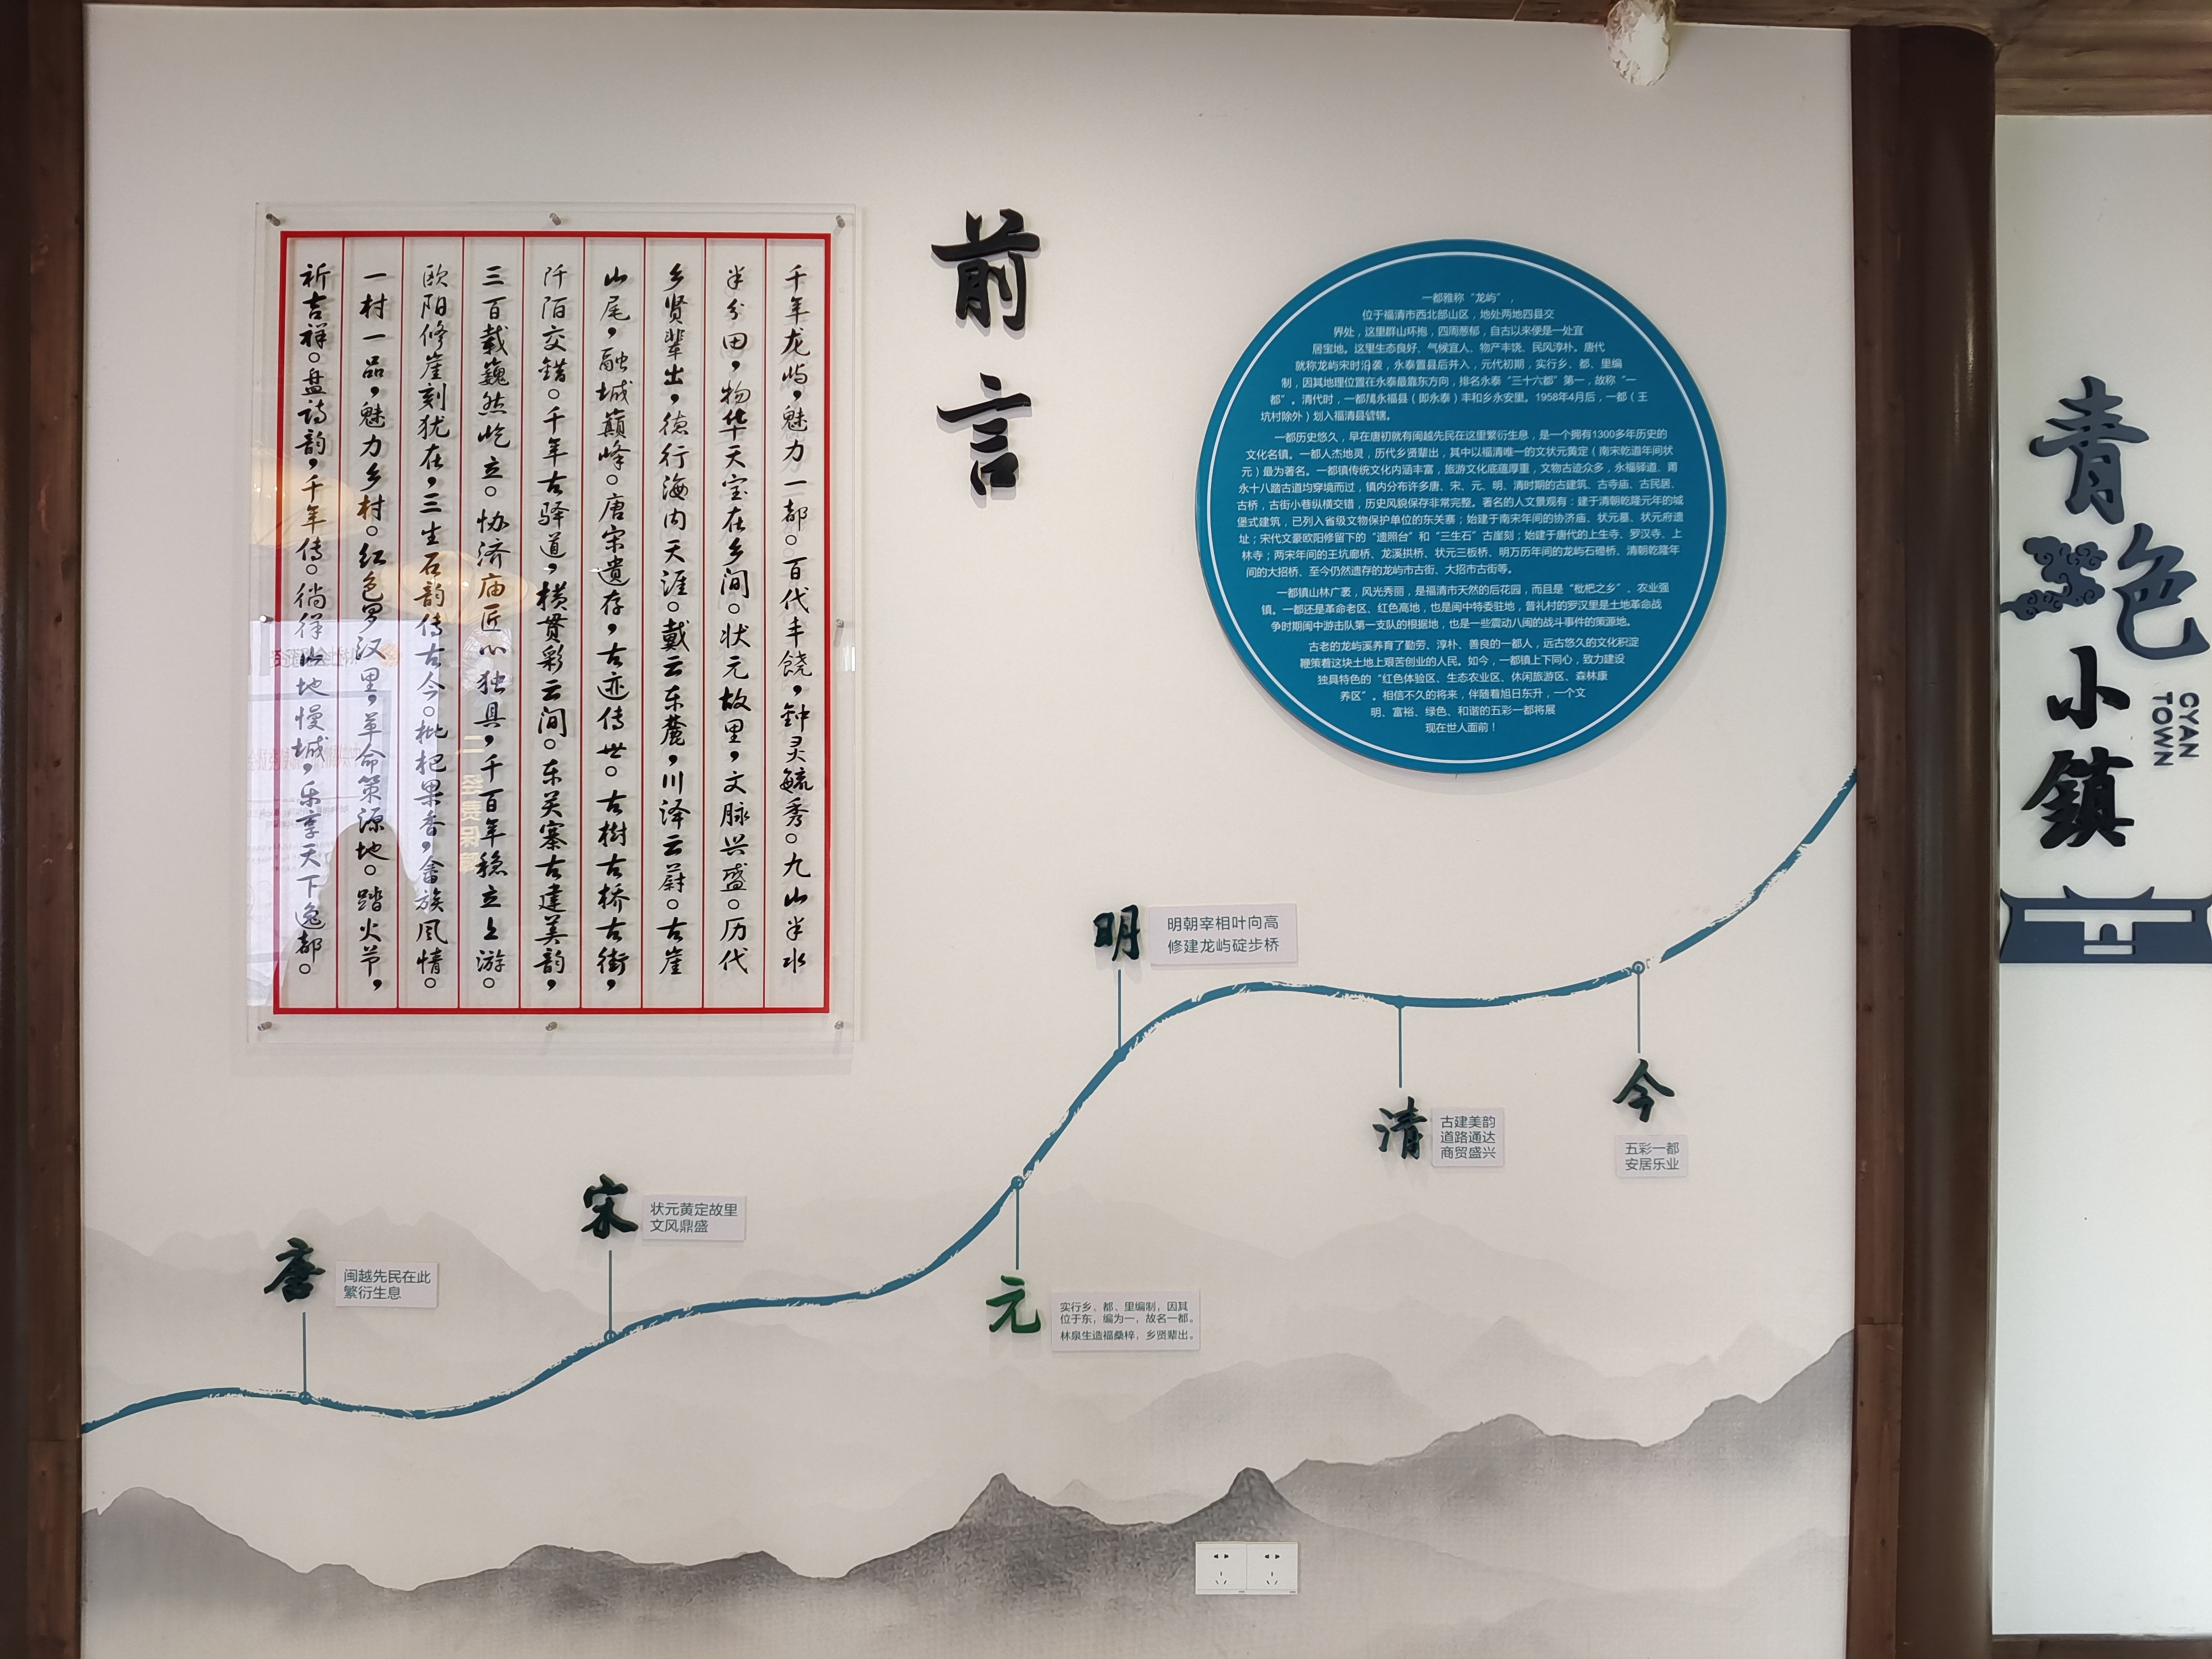 前言
千年龙屿，魅力一都。百代丰饶，钟灵毓秀。九山半水
半分田，物华天宝在乡间。状元故里，文脉兴盛。历代
乡贤辈出，德行海内天涯。戴云东麓，川泽云蔚。古崖
山尾，融城巅峰。唐宋遗存，古迹传世。古樹古桥古街，
阡陌交错。千年古驿道，横贯彩云间。东关寨古建美韵，
三百载巍然屹立。协济庙匠心独具，千百年稳立上游。
欧阳修崖刻犹在，三生石韵传古今。枇杷果香，畲族风情。
一村一品，魅力乡村。红色罗汉里，革命策源地。踏火节，
祈吉祥。盘诗韵，千年传。徜徉山地慢城，乐享天下逸都。
一都雅称“龙屿”，
位于福清市西北部山区，地处两地四县交
界处，这里群山环抱，四周葱郁，自古以来便是一处宜
居宝地。这里生态良好、气候宜人、物产丰饶、民风淳朴。唐代
就称龙屿宋时沿袭，永泰置县后并入，元代初期，实行乡、都、里编
制，因其地理位置在永泰最靠东方向，排名永泰“三十六都”第一，故称“一
都”。清代时，一都隶永福县（即永泰）丰和乡永安里。1958年4月后，一都（王
坑村除外）划入福清县管辖。
一都历史悠久，早在唐初就有闽越先民在这里繁衍生息，是一个拥有1300多年历史的
文化名镇。一都人杰地灵，历代乡贤辈出，其中以福清唯一的文状元黄定（南宋乾道年间状
元）最为著名。一都镇传统文化内涵丰富，旅游文化底蕴厚重，文物古迹众多，永福驿道、莆
永十八踏古道均穿境而过，镇内分布许多唐、宋、元、明、清时期的古建筑、古寺庙、古民居、
古桥，古街小巷纵横交错，历史风貌保存非常完整。著名的人文景观有：建于清朝乾隆元年的城
堡式建筑，已列入省级文物保护单位的东关寨；始建于南宋年间的协济庙、状元墓、状元府遗
址；宋代文豪欧阳修留下的“遗照台”和“三生石”古崖刻；始建于唐代的上生寺、罗汉寺、上
林寺；两宋年间的王坑廊桥、龙溪拱桥、状元三板桥、明万历年间的龙屿石磴桥、清朝乾隆年
间的大招桥、至今仍然遗存的龙屿市古街、大招市古街等。
一都镇山林广袤，风光秀丽，是福清市天然的后花园，而且是“枇杷之乡”、农业强
镇。一都还是革命老区、红色高地，也是闽中特委驻地，普礼村的罗汉里是土地革命战
争时期闽中游击队第一支队的根据地，也是一些震动八闽的战斗事件的策源地。
古老的龙屿溪养育了勤劳、淳朴、善良的一都人，远古悠久的文化积淀
鞭策着这块土地上艰苦创业的人民。如今，一都镇上下同心，致力建设
独具特色的“红色体验区、生态农业区、休闲旅游区、森林康
养区”。相信不久的将来，伴随着旭日东升，一个文
明、富裕、绿色、和谐的五彩一都将展
现在世人面前！
唐
闽越先民在此
繁衍生息
宋
状元黄定故里
文风鼎盛
元
实行乡、都、里编制，因其
位于东，编为一，故名一都。
林泉生造福桑梓，乡贤辈出。
明
明朝宰相叶向高
修建龙屿碇步桥
清
古建美韵
道路通达
商贸盛兴
今
五彩一都
安居乐业
青色小鎮
CYAN
TOWN